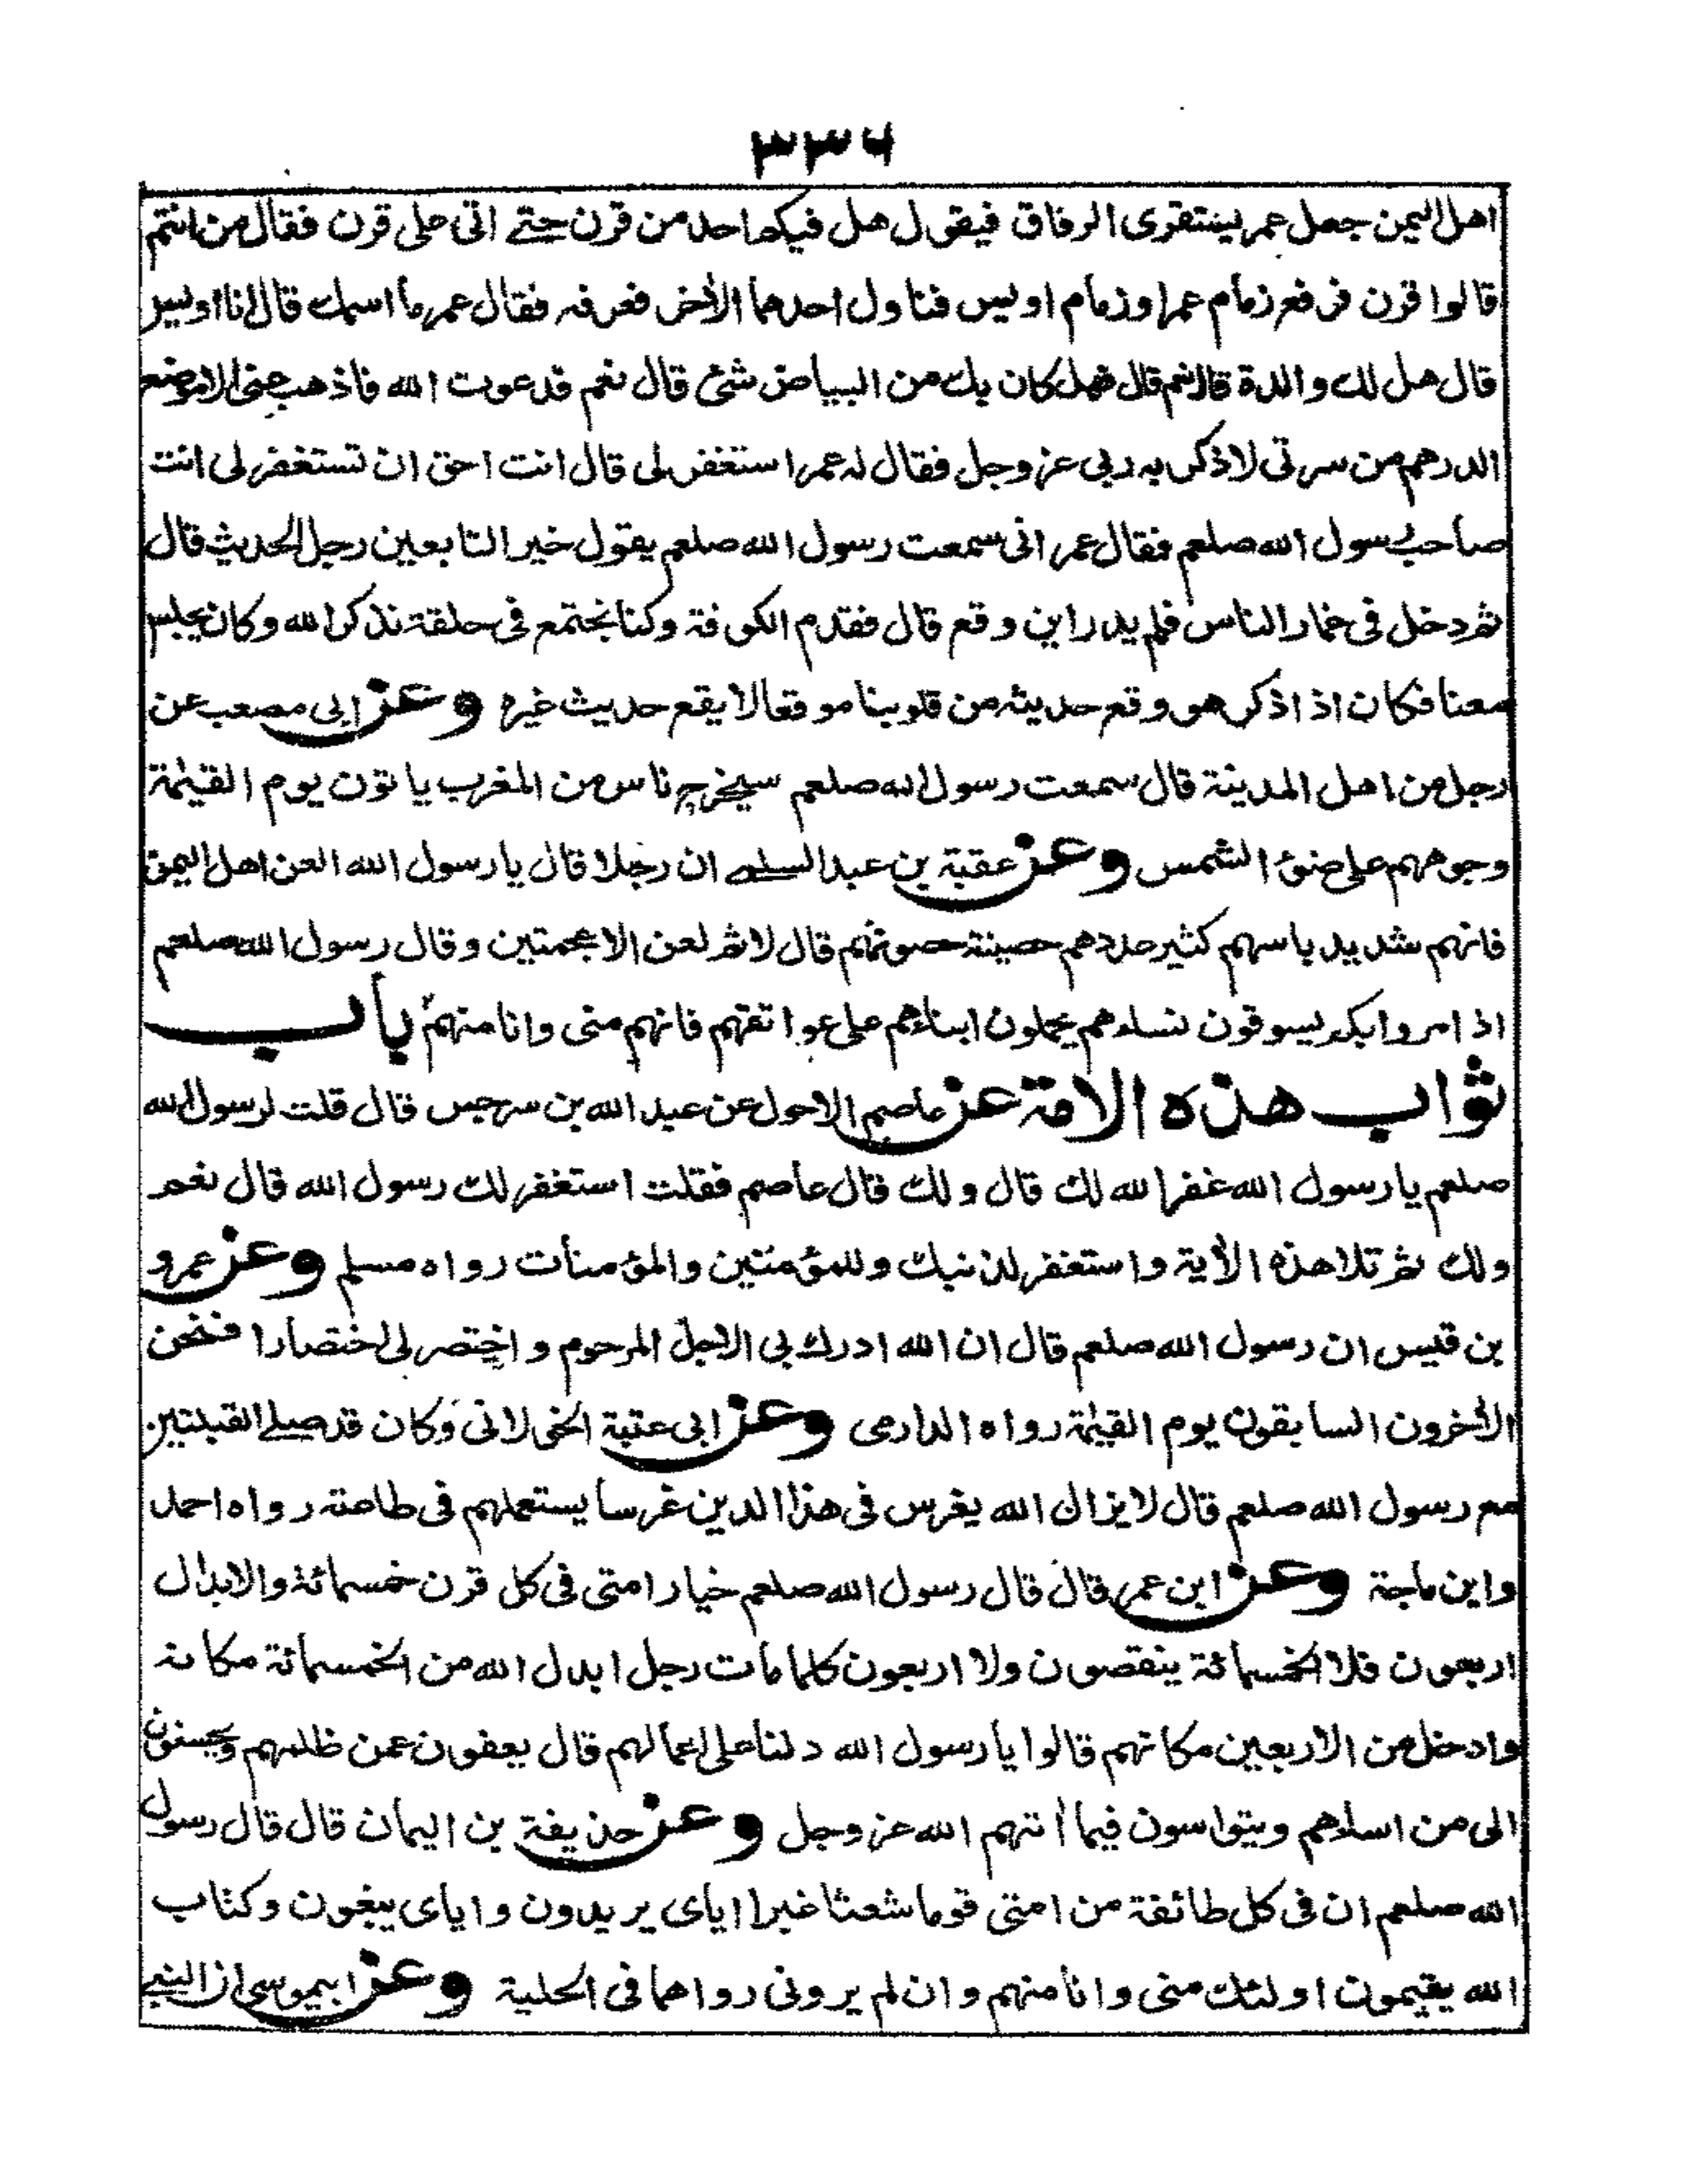 ۳۳۶
اهل اليمن جعل عمر يستقرى الرفاق فيقول هل فيكم احد من قرن حتے اتى على قرن فقال من انتم
قالوا قرن فرفع زمام عمر او زمام اويس فناول احدهما الأخر فعرفه فقال عمر ما اسمك قال انا اويس
قال هل لك والدة قال نعم قال فهل كان بك من البياض شئ قال نعم قد عوت الله فاذهب عنى الا موضع
الدرهم من سرتى لاذكر به ربى عز وجل فقال له عمر استغفر لى قال انت احق ان تستغفر لى انت
صاحب رسول الله صلعم فقال عمر انى سمعت رسول الله صلعم يقول خير التابعين رجل الحديث قال
ثم دخل فى غمار الناس فلم يدر اين وقع قال فقدم الكوفة وكنا نجتمع فى حلقة نذكر الله وكان يجلس
معنا فكان اذا ذكر هو وقع حديثه من قلوبنا موقعا لا يقع حديث غيره وعن ابى مصعب عن
رجل من اهل المدينة قال سمعت رسول الله صلعم سيخرج ناس من المغرب ياتون يوم القيٰمة
وجوههم على ضوئ الشمس وعن عقبة بن عبد السلمے ان رجلا قال يا رسول الله العن اهل اليمن
فانهم شديد باسهم كثير عددهم حصينة حصونهم قال لا ثم لعن الاعجمتين وقال رسول الله صلعم
اذا مروا بكم يسوقون نساءهم يحملون ابناءهم على عواتقهم فانهم منى وانا منهم باب
ثواب هذه الامة عن عاصم الاحول عن عبد الله بن سرجس قال قلت لرسول الله
صلعم يا رسول الله غفر الله لك قال ولك قال عاصم فقلت استغفر لك رسول الله قال نعم
ولك ثم تلا هذه الأية واستغفر لذنبك وللمؤمنين والمؤمنات رواه مسلم وعن عمرو
بن قيس ان رسول الله صلعم قال ان الله ادرك بى الاجل المرحوم واختصر لى اختصارا فنحن
الأخرون السابقون يوم القيٰمة رواه الدارمى وعن ابى عتبة الخولانى وكان قد صلے القبلتين
مع رسول الله صلعم قال لا يزال الله يغرس فى هذا الدين غرسا يستعملهم فى طاعته رواه احمد
وابن ماجة وعن ابن عمر قال قال رسول الله صلعم خيار امتى فى كل قرن خمسمائة والابدال
اربعون فلا الخمسمائة ينقصون ولا اربعون كلما مات رجل ابدل الله من الخمسمائة مكانه
وادخل من الاربعين مكانهم قالوا يا رسول الله دلنا على اعمالهم قال يعفون عمن ظلمهم ويحسنون
الى من اساءهم ويتواسون فيما أتهم الله عز وجل وعن حذيفة بن اليمان قال قال رسول
الله صلعم ان فى كل طائفة من امتى قوما شعثا غبرا اياى يريدون واياى يبغون وكتاب
الله يقيمون اولئك منى وانا منهم وان لم يرونى رواهما فى الحلية وعن ابيموسى ان النبے